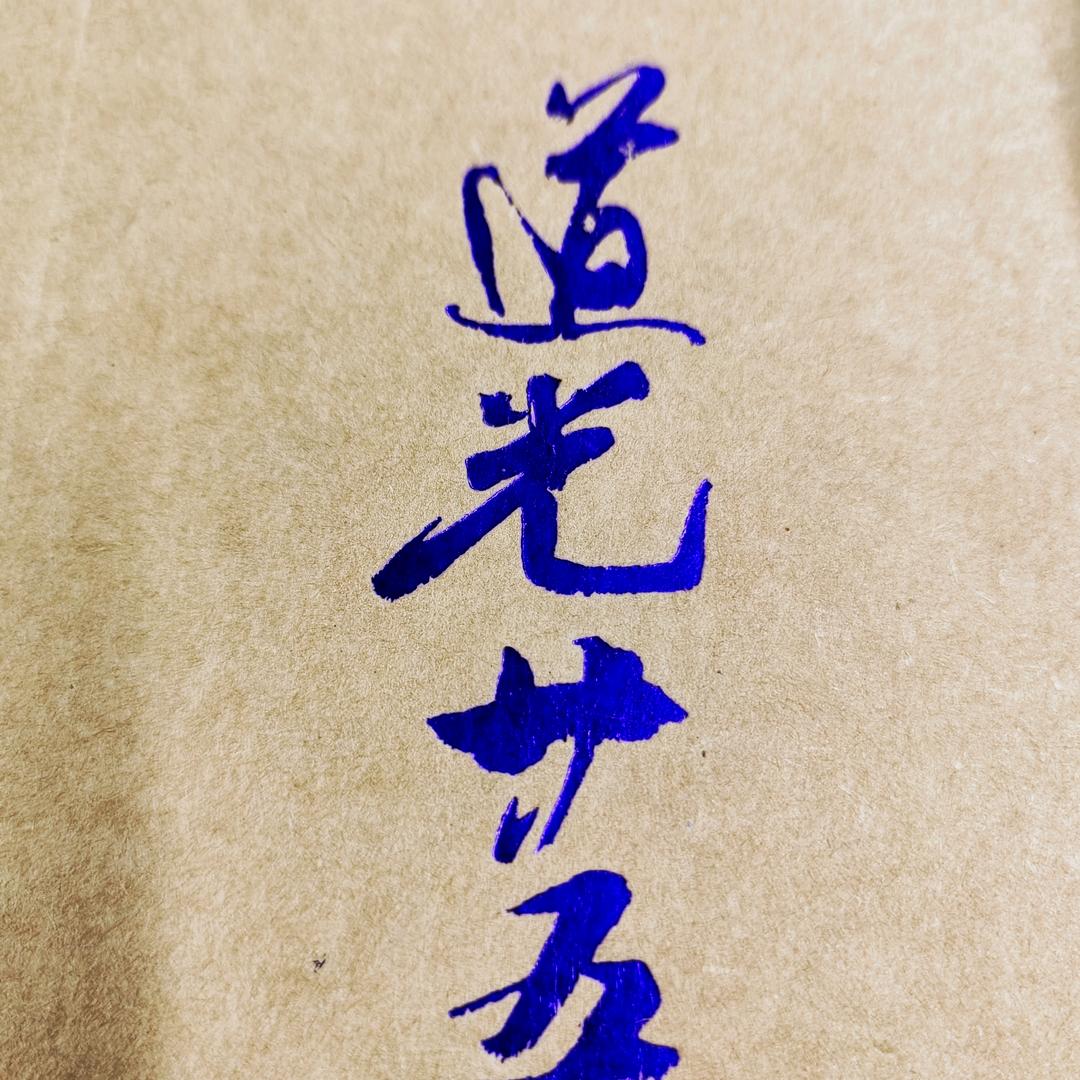 道光廿五